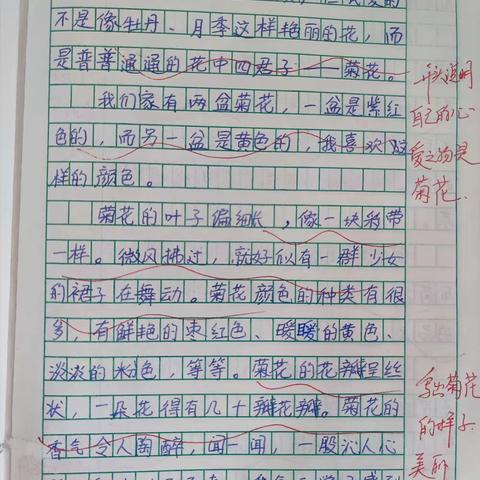 不是像牡丹、月季这样艳丽的花，而
是普普通通的花中四君子——菊花。
我们家有两盆菊花，一盆是紫红
色的，而另一盆是黄色的，我喜欢
样的颜色。
菊花的叶子偏细长，像一块彩带
一样。微风拂过，就好似有一群少女
的裙子在舞动。菊花颜色的种类有很
多，有鲜艳的枣红色、暖暖的黄色、
淡淡的粉色，等等。菊花的花瓣呈丝
状，一朵花得有几十瓣花瓣。菊花的
香气令人陶醉，闻一闻，一股沁人心
开头说明
自己的心
爱之物是
菊花.
写出菊花
的样子
美丽